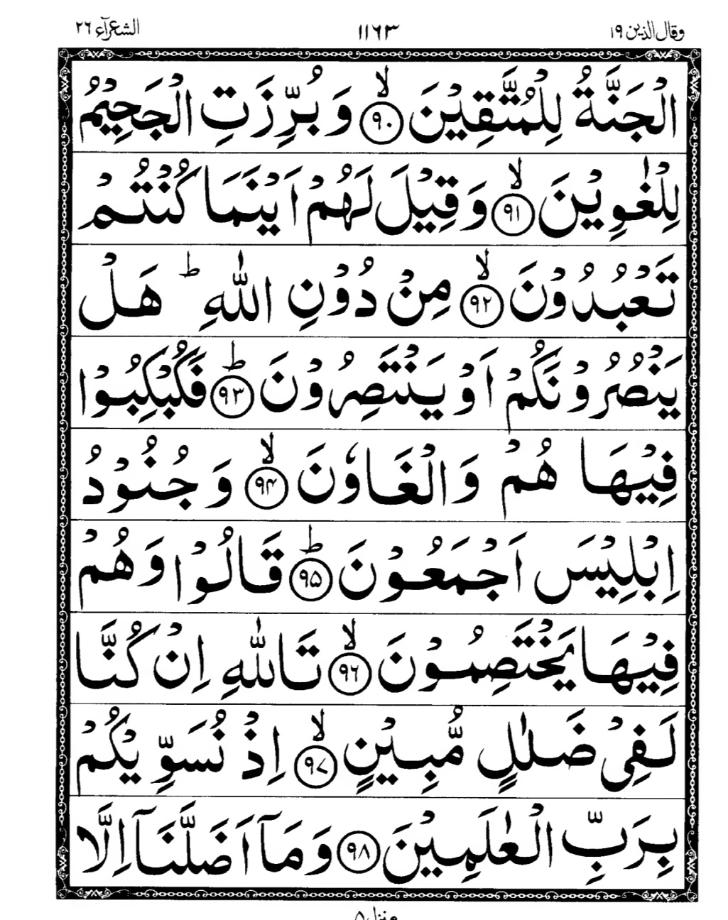 وقال الذين ١٩ ١١٦٣ الشعرآء ٢٦
الْجَنَّةُ لِلْمُتَّقِيْنَ ۙ﴿٩٠﴾ وَ بُرِّزَتِ الْجَحِيْمُ
لِلْغٰوِيْنَ ۙ﴿٩١﴾ وَ قِيْلَ لَهُمْ اَيْنَمَا كُنْتُمْ
تَعْبُدُوْنَ ۙ﴿٩٢﴾ مِنْ دُوْنِ اللّٰهِ ؕ هَلْ
يَنْصُرُوْنَكُمْ اَوْ يَنْتَصِرُوْنَ ؕ﴿٩٣﴾ فَكُبْكِبُوْا
فِيْهَا هُمْ وَ الْغَاوٗنَ ۙ﴿٩٤﴾ وَ جُنُوْدُ
اِبْلِيْسَ اَجْمَعُوْنَ ؕ﴿٩٥﴾ قَالُوْا وَ هُمْ
فِيْهَا يَخْتَصِمُوْنَ ۙ﴿٩٦﴾ تَاللّٰهِ اِنْ كُنَّا
لَفِيْ ضَلٰلٍ مُّبِيْنٍ ۙ﴿٩٧﴾ اِذْ نُسَوِّيْكُمْ
بِرَبِّ الْعٰلَمِيْنَ ﴿٩٨﴾ وَ مَاۤ اَضَلَّنَاۤ اِلَّا
منزل ٥